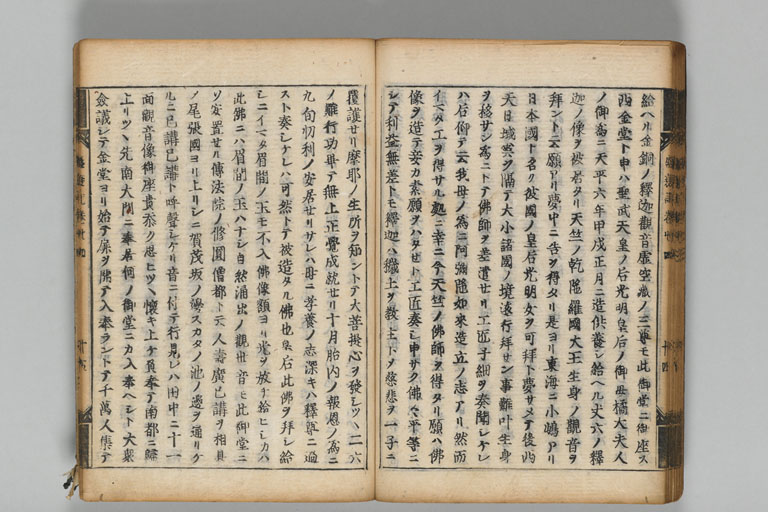 給ヘル金銅ノ釋迦觀音虚空藏ノ三尊モ此御堂ニ御座ス
西金堂ト申ハ聖武天皇ノ后光明皇后ノ御母橘大夫人
ノ御爲ニ天平六年甲戌正月ニ造供養シ給ヘル丈六ノ釋
迦ノ像ヲ被居タリ天竺ノ乾陀羅國大王生身ノ觀音ヲ
拜ント云願アリ夢中ニ告ヲ得タリ是ヨリ東海ニ小嶋アリ
日本國ト名ク彼國ノ皇后光明女ヲ可拜ト夢サメテ後西
天日域雲ヲ隔テ大小諸國ノ境遠行拜サン事難叶生身
ヲ移サン爲ニトテ佛師ヲ差遣セリ工匠子細ヲ奏聞シケレ
ハ后仰テ云我母ノ爲ニ阿彌陀如來造立ノ志アリ然而
イマタ工ヲ得サル處ニ幸ニ今天竺ノ佛師ヲ得タリ願ハ佛
像ヲ造テ妾カ素願ヲハタセト工匠奏シ申サク佛ハ平等ニ
シテ利益無差トモ釋迦ハ穢土ヲ教土トメ慈悲ヲ一子ニ
覆護セリ摩耶ノ生所ヲ知ントテ大菩提心ヲ發シツヽ二六
ノ難行功畢テ無上正覺成就セリ十月胎内ノ報恩ノ爲ニ
九旬忉利ノ安居セリサレハ母ニ孝養ノ志深キハ釋尊ニ過
スト奏シケレハ可然トテ被造タル佛也皇后此佛ヲ拜シ給
シニイマタ眉間ノ玉モ不入佛像額ヨリ光ヲ放リ給ヒシカハ
此佛ニハ眉間ノ玉ハナシ自然涌出ノ觀世音モ此御堂ニ
ソ安置セリ傳法院ノ修圓僧都ト云人壽廣已講ヲ相具
ノ尾張國ヨリ上リシニ賀茂坂ノ湯スカタノ池ノ邊ヲ通リケ
ルニ已講已講ト呼聲シケリ音ニ付テ行見レハ田中ニ十一
面觀音像御座貴忝ク思ヒツヽ懷キ上ケ負奉テ南都ニ歸
上リツヽ先南大門ニ奉居何ノ御堂ニカ入奉ヘシト大衆
僉議シテ金堂ヨリ始テ扉ヲ開テ入奉ラントテ千萬人集テ